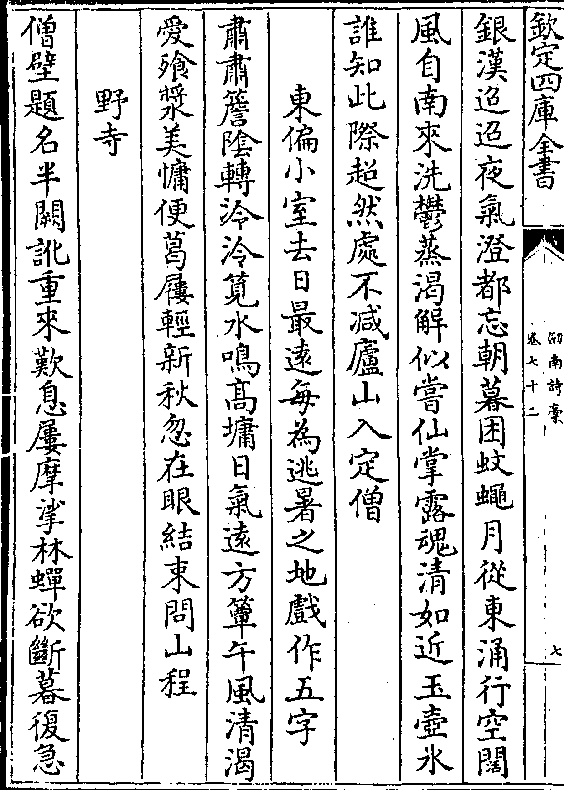 欽定四庫全書
劒南詩稾
卷七十二
七
銀漢迢迢夜氣澄都忘朝暮困蚊蠅月從東涌行空闊
風自南來洗鬱蒸渴解似嘗仙掌露魂清如近玉壺氷
誰知此際超然處不減廬山入定僧
東偏小室去日最逺每為逃暑之地戲作五字
肅肅簷陰轉泠泠筧水鳴高墉日氣逺方簟午風清渴
愛飱漿美慵便葛屨輕新秋忽在眼結束問山程
野寺
僧壁題名半闕訛重來歎息屢摩挲林蟬欲斷暮復急